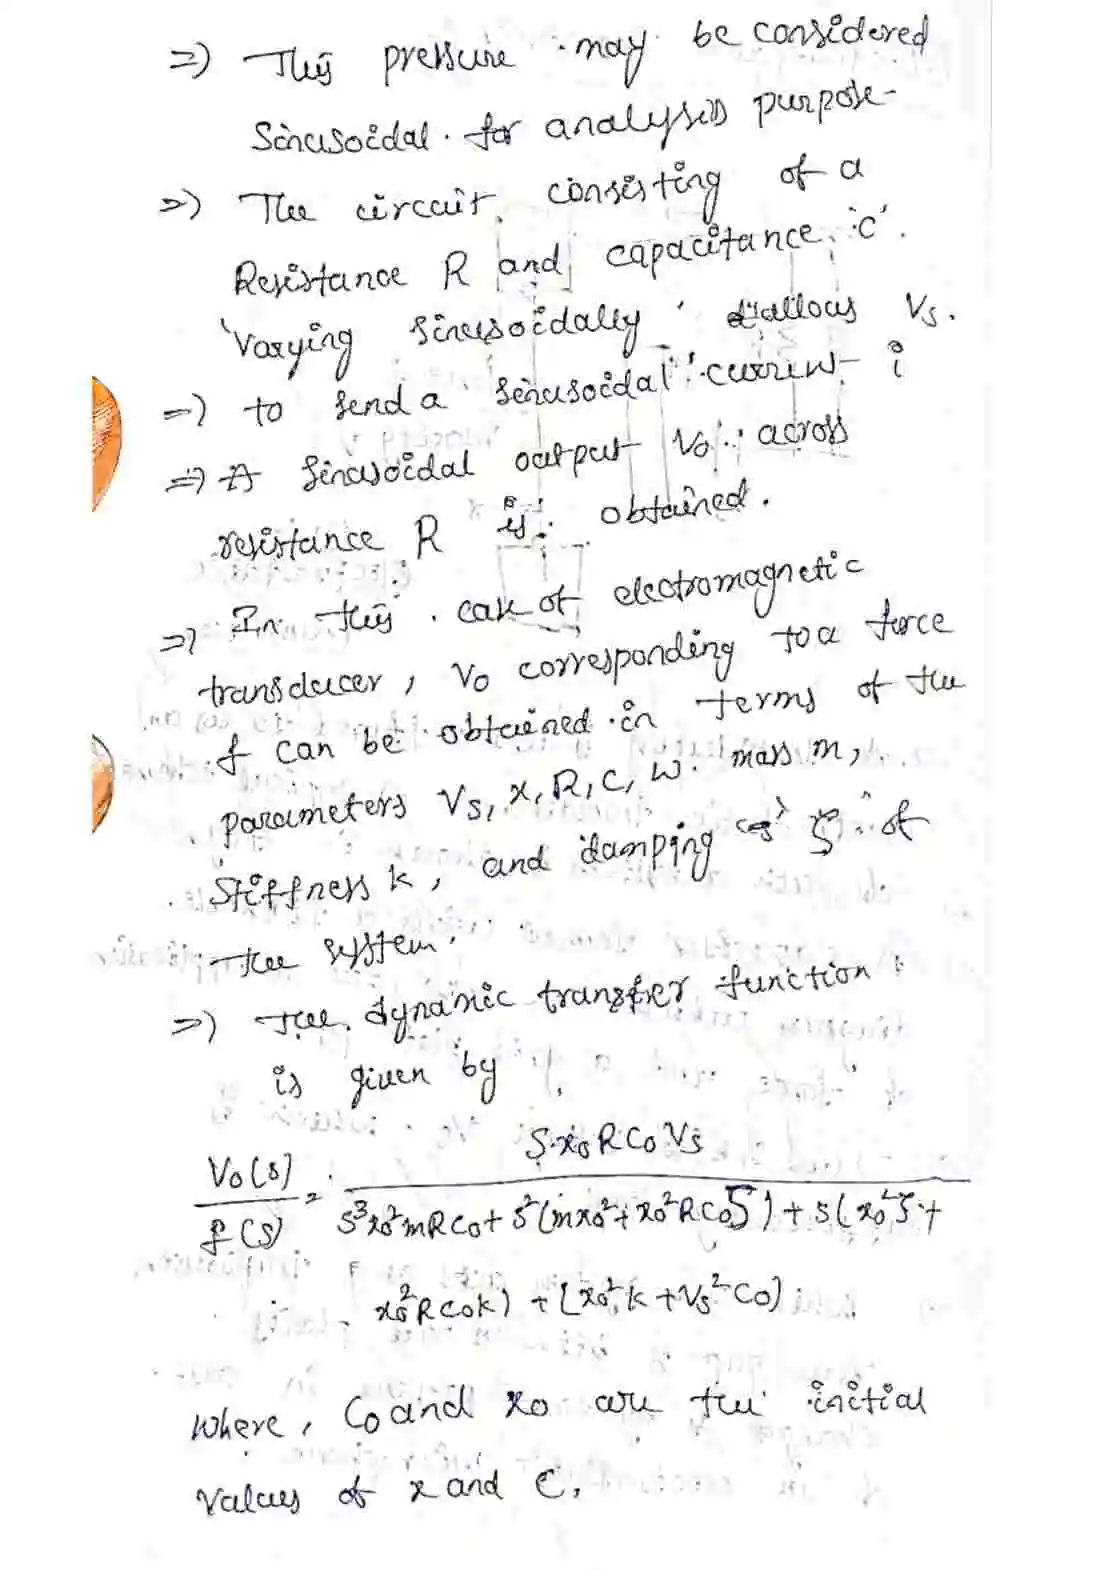 => This pressure may be considered
Sinusoidal for analysis purpose-
=> The circuit consisting of a
Resistance R and capacitance 'c'.
'Varying sinusoidally' allows Vs.
=> to send a sinusoidal current i
=> A sinusoidal output Vo across
resistance R is obtained.
=> In this case of electromagnetic
transducer, Vo corresponding to a force
f can be obtained in terms of the
parameters Vs, x, R, C, W. mass m,
Stiffness k, and damping ζ of
the system.
=> The dynamic transfer function
is given by
Vo(s)/f(s) = S·x₀RC₀Vs
S³x₀²mRC₀ + S²(mx₀² + x₀²RC₀ζ) + S(x₀²ζ +
x₀²RC₀k) + (x₀²k + Vs²C₀)
Where, C₀ and x₀ are the initial
Values of x and C.